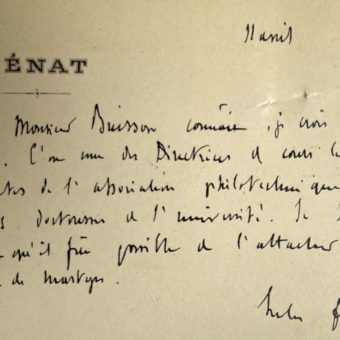 11 avril
ÉNAT
Monsieur Buisson connaît, je crois
. C'est une des Directrices de cours
de l'association philotechnique
doctoresses de l'université. Je
qu'il fût possible de l'attacher
de
Jules